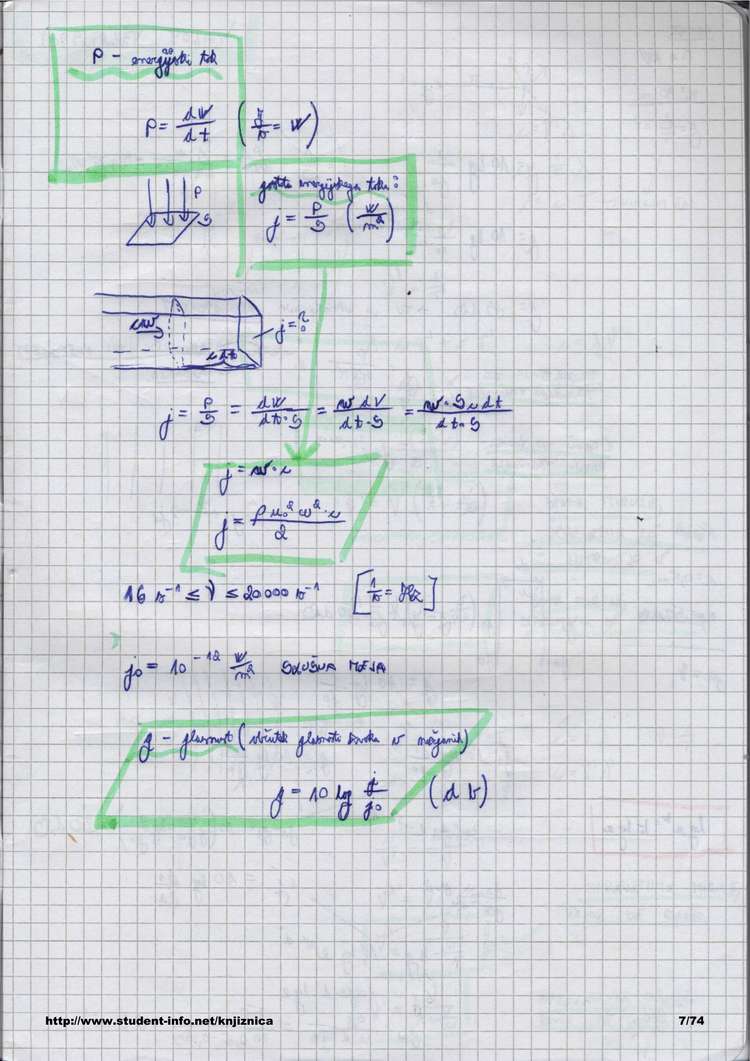 P - energijski tok
P = dW/dt (J/s = W)
P
S
gostota energijskega toka:
j = P/S (W/m²)
cw
j = ?
c dt
j = P/S = dW/dt·S = w dV/dt·S = w·S c dt/dt·S
j = w·c
j = ρ u₀² ω²·c/2
16 s⁻¹ ≤ ν ≤ 20000 s⁻¹ [1/s = Hz]
j₀ = 10⁻¹² W/m² SLUŠNA MEJA
g - glasnost (občutek glasnosti zvoka v možganih)
g = 10 log j/j₀ (d b)
http://www.student-info.net/knjiznica
7/74